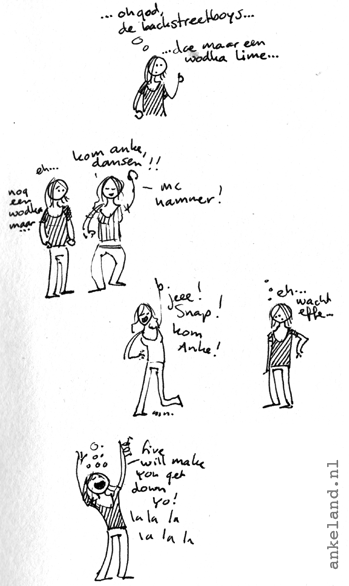 ...oh god,
de backstreetboys...
...doe maar een
wodka lime...
eh...
nog
een
wodka
maar
...
kom anke,
dansen!!
mc
hammer!
jeee!
Snap!
kom
Anke!
eh...
wacht
effe...
five
will make
you get
down
yo!
la la la
la la la
ankeland.nl